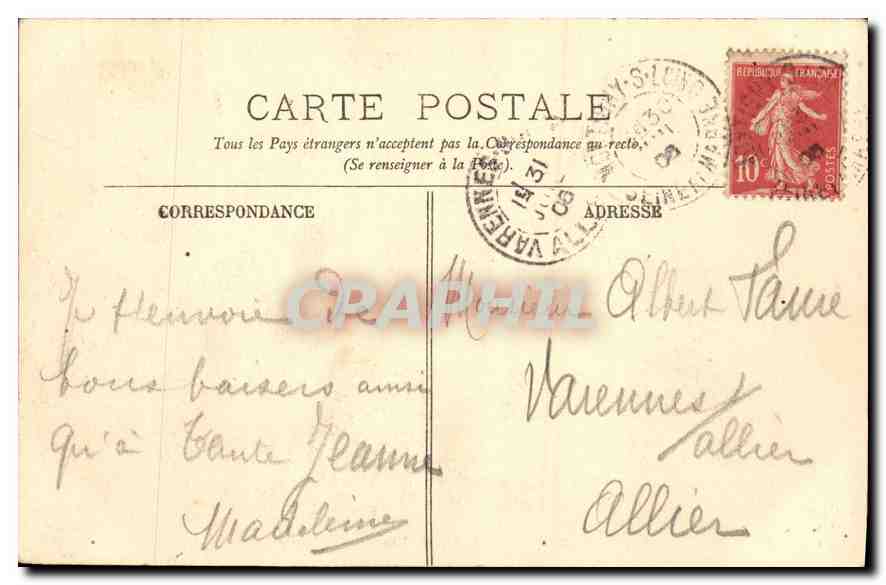 CARTE POSTALE
Tous les Pays étrangers n'acceptent pas la Correspondance au recto,
(Se renseigner à la Poste).
CORRESPONDANCE
ADRESSE
REPUBLIQUE FRANÇAISE
10 c
POSTES
S-LOING
30
08
SEINE-ET-MARNE
VARENNES
31
08
CPAPHIL
Je t'envoie de
bons baisers ainsi
qu'à tante Jeanne
Madeleine
Monsieur Albert
Varennes s/
allier
Allier